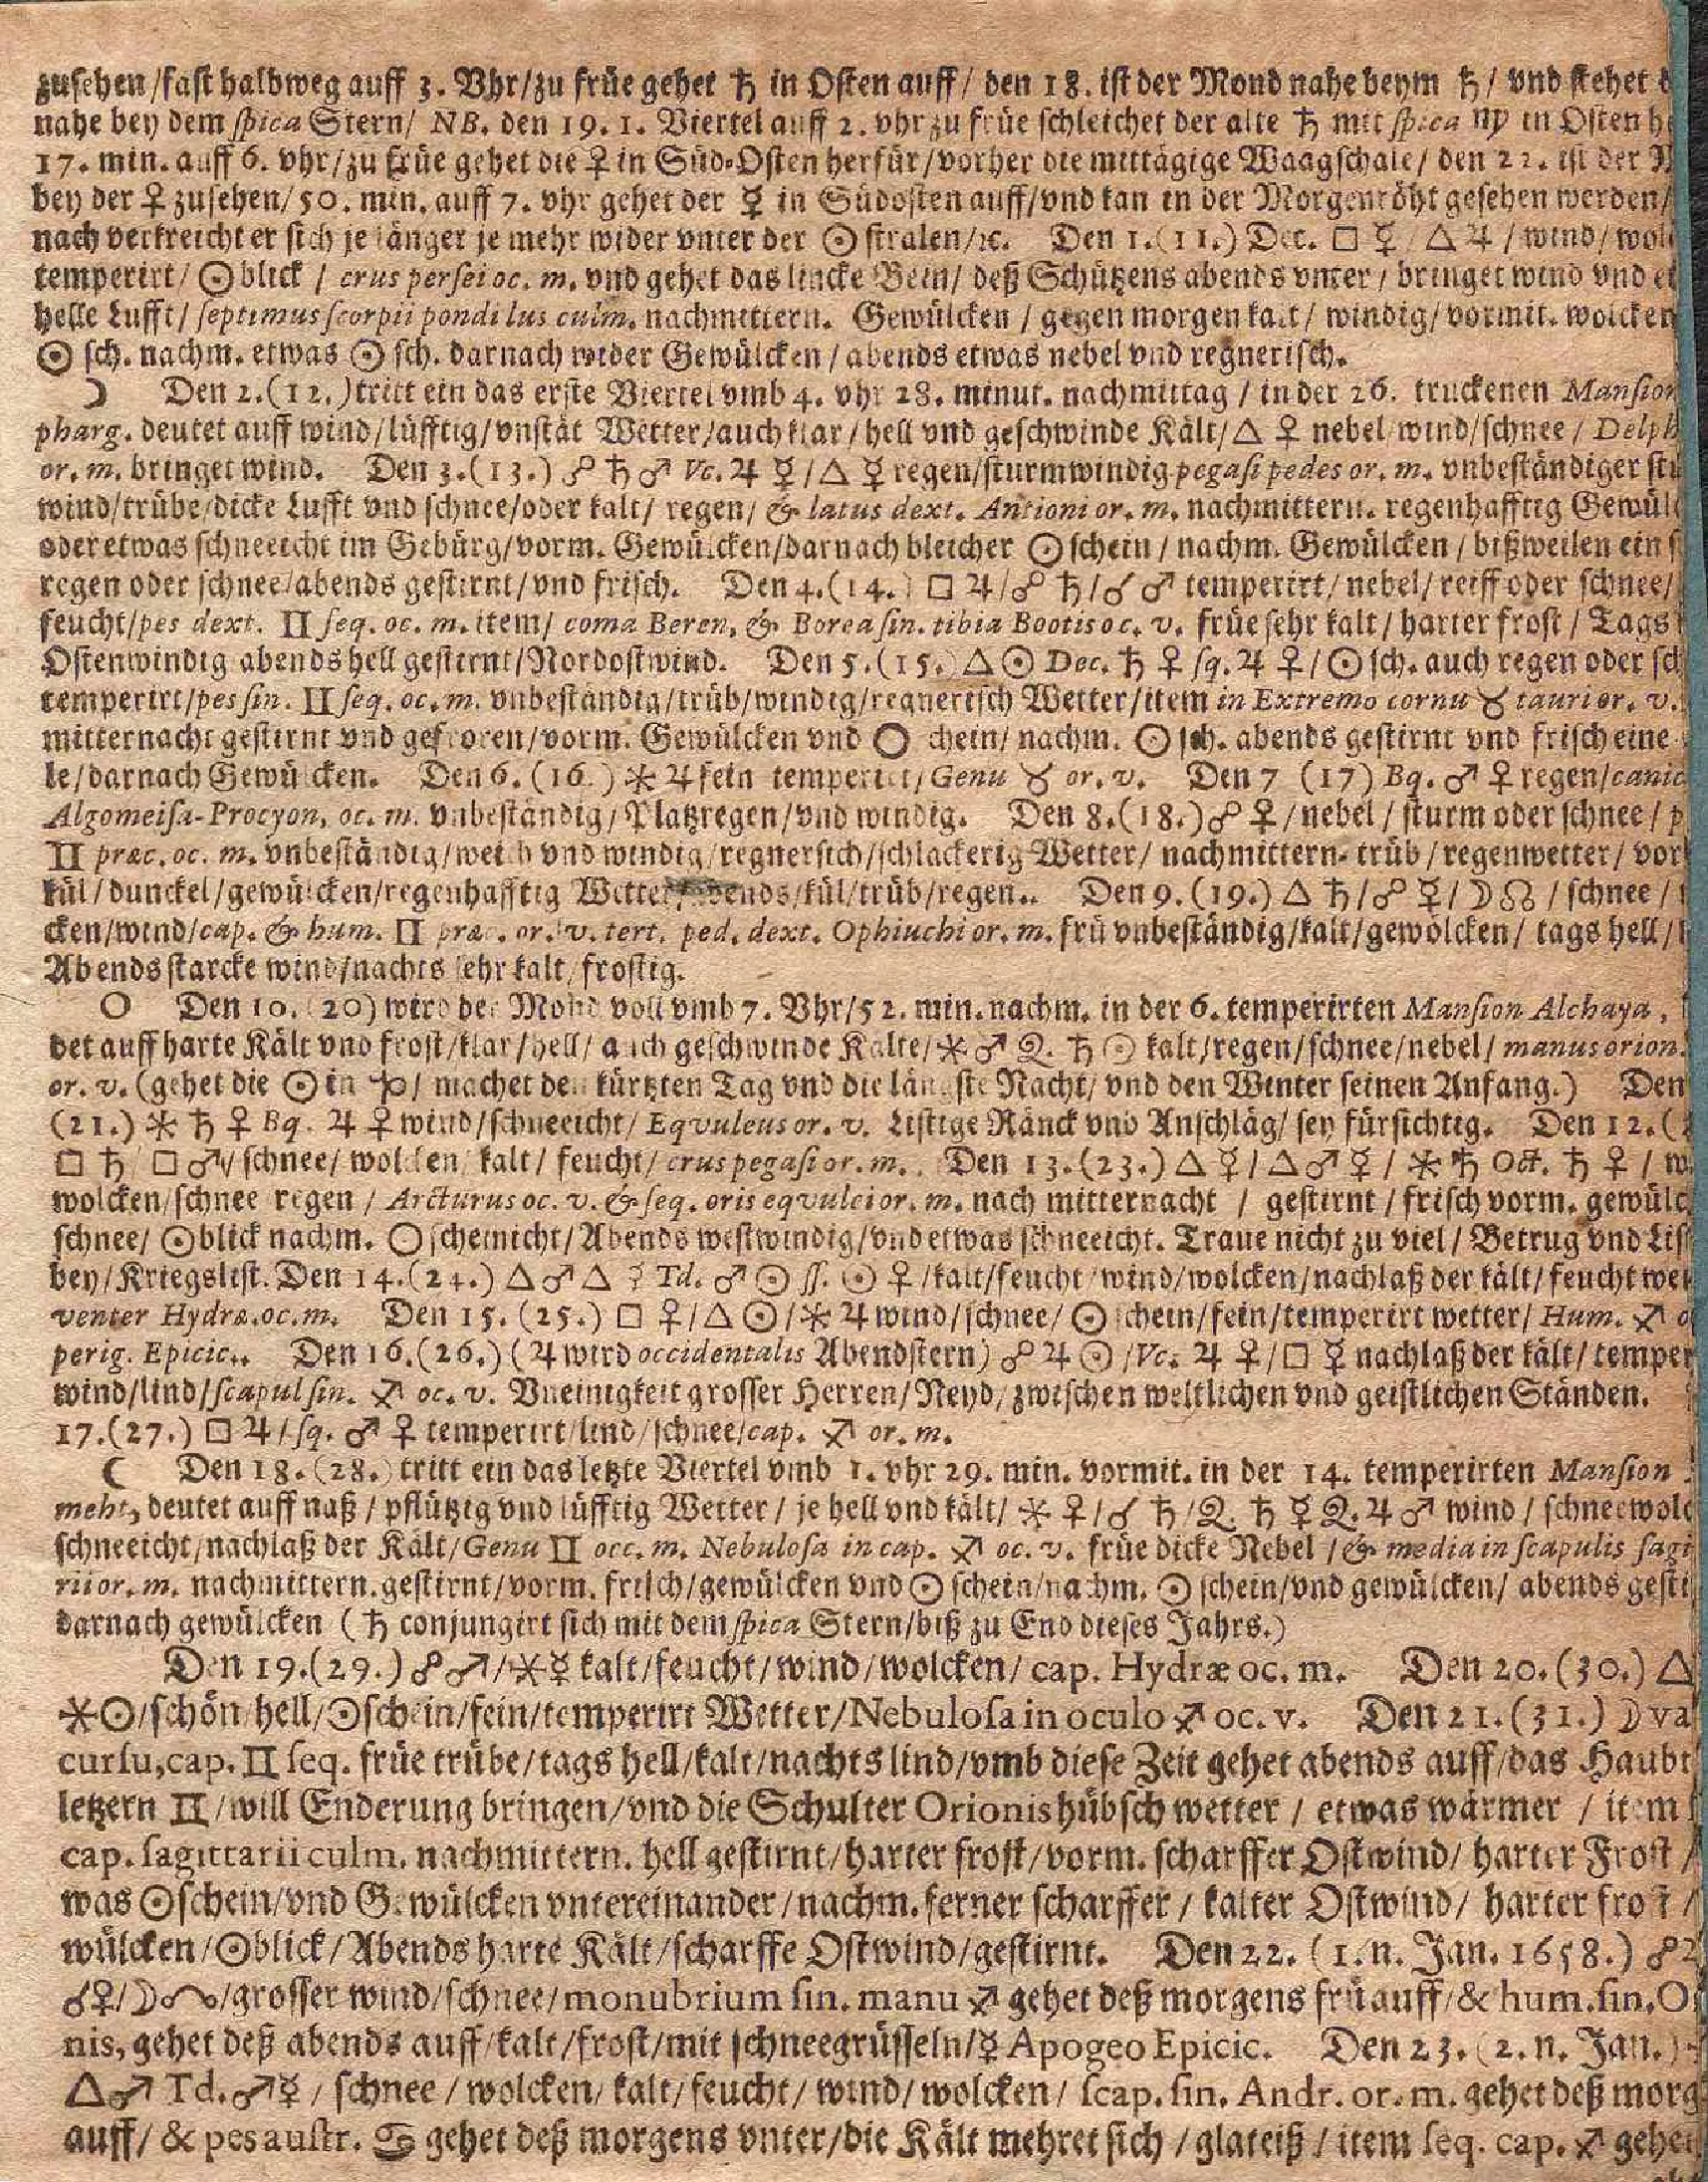 zusehen/fast halbweg auff 3. Vhr/zu früe gehet ♄ in Osten auff/ den 18. ist der Mond nahe beym ♄/ vnd stehet
nahe bey dem spica Stern/ NB. den 19. 1. Viertel auff 2. vhr zu früe schleichet der alte ♄ mit spica ♍ in Osten
17. min. auff 6. vhr/zu früe gehet die ♀ in Süd-Osten herfür/vorher die mittägige Waagschale/ den 22. ist der
bey der ♀ zusehen/50. min. auff 7. vhr gehet der ☿ in Südosten auff/vnd kan in der Morgenröht gesehen werden/
nach verkreicht er sich je länger je mehr wider vnter der ☉ stralen/ꝛc. Den 1.(11.) Dec. □ ☿/△ ♃/wind/
temperirt/ ☉blick / crus persei oc. m. vnd gehet das lincke Bein/ deß Schützens abends vnter/ bringet wind vnd
helle Lufft/ septimus scorpii pondilus culm. nachmittern. Gewülcken / gegen morgen kalt/ windig/ vormit. wolcken
☉ sch. nachm. etwas ☉ sch. darnach wider Gewülcken / abends etwas nebel vnd regnerisch.
☽ Den 2.(12.) tritt ein das erste Viertel vmb 4. vhr 28. minut. nachmittag / in der 26. truckenen Mansion
pharg. deutet auff wind/lüfftig/vnstät Wetter/auch klar/hell vnd geschwinde Kält/△ ♀ nebel/wind/schnee/
or. m. bringet wind. Den 3.(13.) ☍ ♄ ♂ Vc. ♃ ☿/△ ☿ regen/sturmwindig pegasi pedes or. m. vnbeständiger
wind/trübe/dicke Lufft vnd schnee/oder kalt/ regen/ & latus dext. Antioni or. m. nachmittern. regenhafftig
oder etwas schneeicht im Gebürg/vorm. Gewülcken/darnach bleicher ☉schein / nachm. Gewülcken / bißweilen ein
regen oder schnee/abends gestirnt/vnd frisch. Den 4.(14.) □ ♃/☍ ♄/☌ ♂ temperirt/nebel/reiff oder schnee/
feucht/pes dext. ♊ seq. oc. m. item/ coma Beren. & Borea sin. tibia Bootis oc. v. früe sehr kalt/ harter frost / Tags
Ostenwindig abends hell gestirnt/Nordostwind. Den 5.(15.) △ ☉ Dec. ♄ ♀ sq. ♃ ♀/☉ sch. auch regen oder
temperirt/pes sin. ♊ seq. oc. m. vnbeständig/trüb/windig/regnerisch Wetter/item in Extremo cornu ♉ tauri or. v.
mitternacht gestirnt vnd gefroren/vorm. Gewülcken vnd ☉ schein/ nachm. ☉ sch. abends gestirnt vnd frisch eine
le/darnach Gewülcken. Den 6. (16.) ⚹ ♃ fein temperirt/Genu ♉ or. v. Den 7 (17) Bq. ♂ ♀ regen/
Algomeisa-Procyon, oc. m. vnbeständig/Platzregen/vnd windig. Den 8.(18.) ☍ ♀/nebel/ sturm oder schnee/
♊ præc. oc. m. vnbeständig/weich vnd windig/regnersich/schlackerig Wetter/ nachmittern. trüb/regenwetter/
kül/dunckel/gewülcken/regenhafftig Wetter/abends/kül/trüb/regen.. Den 9.(19.) △ ♄/☍ ☿/☽☊/schnee/
cken/wind/cap. & hum. ♊ præc. or. v. tert. ped. dext. Ophiuchi or. m. frü vnbeständig/kalt/gewölcken/ tags hell/
Abends starcke wind/nachts sehr kalt/frostig.
○ Den 10. (20) wird der Mond voll vmb 7. Vhr/52. min. nachm. in der 6. temperirten Mansion Alchaya,
det auff harte Kält vnd frost/klar/hell/ auch geschwinde Kälte/⚹ ♂ Q. ♄ ☉ kalt/regen/schnee/nebel/ manus orion.
or. v. (gehet die ☉ in ♑/ machet den kürtzten Tag vnd die längste Nacht/ vnd den Winter seinen Anfang.) Den
(21.) ⚹ ♄ ♀ Bq. ♃ ♀ wind/schneeicht/ Eqvuleus or. v. Listige Ränck vnd Anschläg/ sey fürsichtig. Den 12.
□ ♄/ □ ♂/ schnee/ wolcken/ kalt/ feucht/ crus pegasi or. m. Den 13.(23.) △ ☿/△ ♂ ☿/ ⚹ ♄ Oct. ♄ ♀ /
wolcken/schnee regen / Arcturus oc. v. & seq. oris eqvulei or. m. nach mitternacht / gestirnt / frisch vorm.
schnee/ ☉blick nachm. ☉scheinicht/Abends westwindig/vnd etwas schneeicht. Traue nicht zu viel/ Betrug vnd List
bey/Kriegslist. Den 14.(24.) △ ♂ △ ☿ Td. ♂ ☉ ss. ☉ ♀/kalt/feucht/wind/wolcken/nachlaß der kält/feucht
venter Hydræ.oc.m. Den 15. (25.) □ ♀/△ ☉/⚹ ♃ wind/schnee/ ☉ schein/fein/temperirt wetter/ Hum. ♐
perig. Epicic.. Den 16.(26.) (♃ wird occidentalis Abendstern) ☍ ♃ ☉/Vc. ♃ ♀/□ ☿ nachlaß der kält/
wind/lind/scapul sin. ♐ oc. v. Vneinigkeit grosser Herren/Neyd/zwischen weltlichen vnd geistlichen Ständen.
17.(27.) □ ♃/sq. ♂ ♀ temperirt/lind/schnee/cap. ♐ or. m.
☾ Den 18.(28.) tritt ein das letzte Viertel vmb 1. vhr 29. min. vormit. in der 14. temperirten Mansion
meht, deutet auff naß / pflützig vnd lüfftig Wetter/ je hell vnd kält/ ⚹ ♀/☌ ♄/Q. ♄ ☿ Q. ♃ ♂ wind/
schneeicht/nachlaß der Kält/Genu ♊ occ. m. Nebulosa in cap. ♐ oc. v. früe dicke Nebel/& media in scapulis
rii or. m. nachmittern. gestirnt/vorm. frisch/gewülcken vnd ☉schein/nachm. ☉ schein/vnd gewülcken/ abends
darnach gewülcken ( ♄ conjungirt sich mit dem spica Stern/biß zu End dieses Jahrs.)
Den 19.(29.) ☍♂/⚹☿ kalt/feucht/wind/wolcken/ cap. Hydræ oc. m. Den 20.(30.) △
⚹☉/schön hell/☉schein/fein/temperirt Wetter/Nebulosa in oculo ♐ oc. v. Den 21.(31.) ☽
cursu, cap. ♊ seq. früe trübe/tags hell/kalt/nachts lind/vmb diese Zeit gehet abends auff/das Haubt
letzern ♊/will Enderung bringen/vnd die Schulter Orionis hübsch wetter / etwas wärmer / item
cap. sagittarii culm. nachmittern. hell gestirnt/harter frost/vorm. scharffer Ostwind/ harter Frost
was ☉schein/vnd Gewülcken vntereinander/nachm. ferner scharffer / kalter Ostwind/ harter frost/
wülcken/☉blick/Abends harte Kält/scharffe Ostwind/gestirnt. Den 22. (1. n. Jan. 1658.) ☍
☌♀/☽☋/grosser wind/schnee/monubrium sin. manu ♐ gehet deß morgens frü auff/& hum. sin.
nis, gehet deß abends auff/kalt/frost/mit schneegrüsseln/☿ Apogeo Epicic. Den 23. (2. n. Jan.)
△♂ Td. ♂☿ / schnee / wolcken/ kalt/ feucht/ wind/ wolcken/ scap. sin. Andr. or. m. gehet deß
auff/ & pes austr. ♋ gehet deß morgens vnter/die Kält mehret sich / glateiß / item seq. cap. ♐